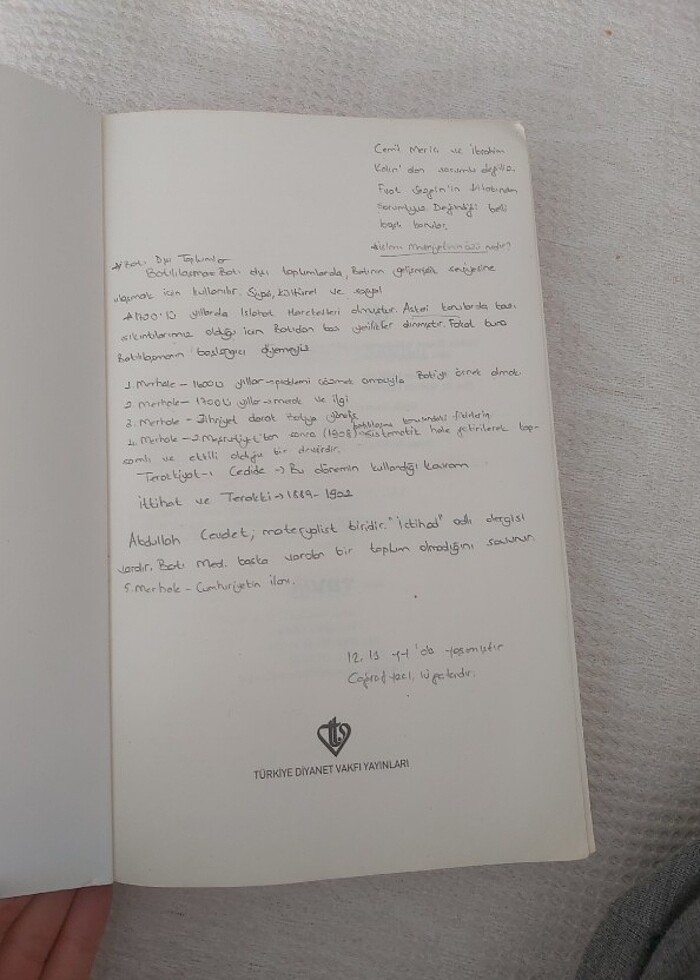 Cemil Meriç ve İbrahim
Kalın'dan sorumlu değiliz.
Fuat Sezgin'in kitabından
sorumluyuz Değindiği belli
başlı konular.
İslam Medeniyetinin özü nedir?
Batı Dışı Toplumlar
Batılılaşma Batı dışı toplumlarda, Batının gelişmişlik seviyesine
ulaşmak için kullanılır. Siyasi, kültürel ve sosyal
1700'lü yıllarda Islahat Hareketleri olmuştur. Askeri konularda bazı
sıkıntılarımız olduğu için Batıdan bazı yenilikler alınmıştır. Fakat buna
Batılılaşmanın başlangıcı diyemeyiz
1. Merhale - 1600lü yıllar → problemi çözmek amacıyla Batıyı örnek almak.
2. merhale - 1700lü yıllar → merak ve ilgi
3. Merhale - Zihniyet olarak Batıya
batılılaşma konusundaki fikirlerin
4. Merhale - 2. Meşrutiyet'ten sonra (1908) sistematik hale getirilerek kap-
samlı ve etkili olduğu bir devredir.
Terakkiyat-ı Cedide → Bu dönemin kullandığı kavram
İttihat ve Terakki → 1889 - 1902
Abdullah Cevdet; materyalist biridir. "İctihad" adlı dergisi
vardır. Batı Med. başka varolan bir toplum olmadığını savunur.
5. Merhale - Cumhuriyetin ilanı.
12. 13 yy'da yaşamıştır
Coğrafyacı,
TÜRKİYE DİYANET VAKFI YAYINLARI